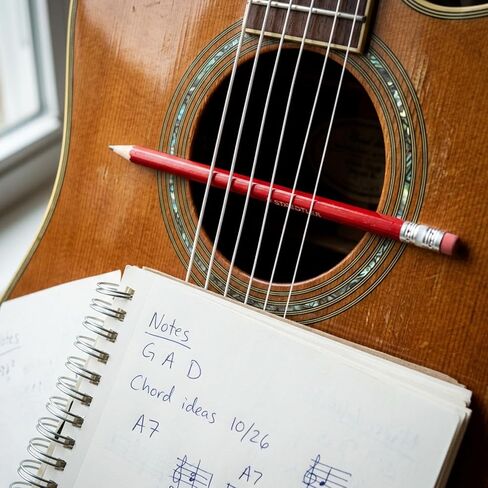 Notes
G A D
Chord ideas 10/26
A7
A7
STAEDTLER